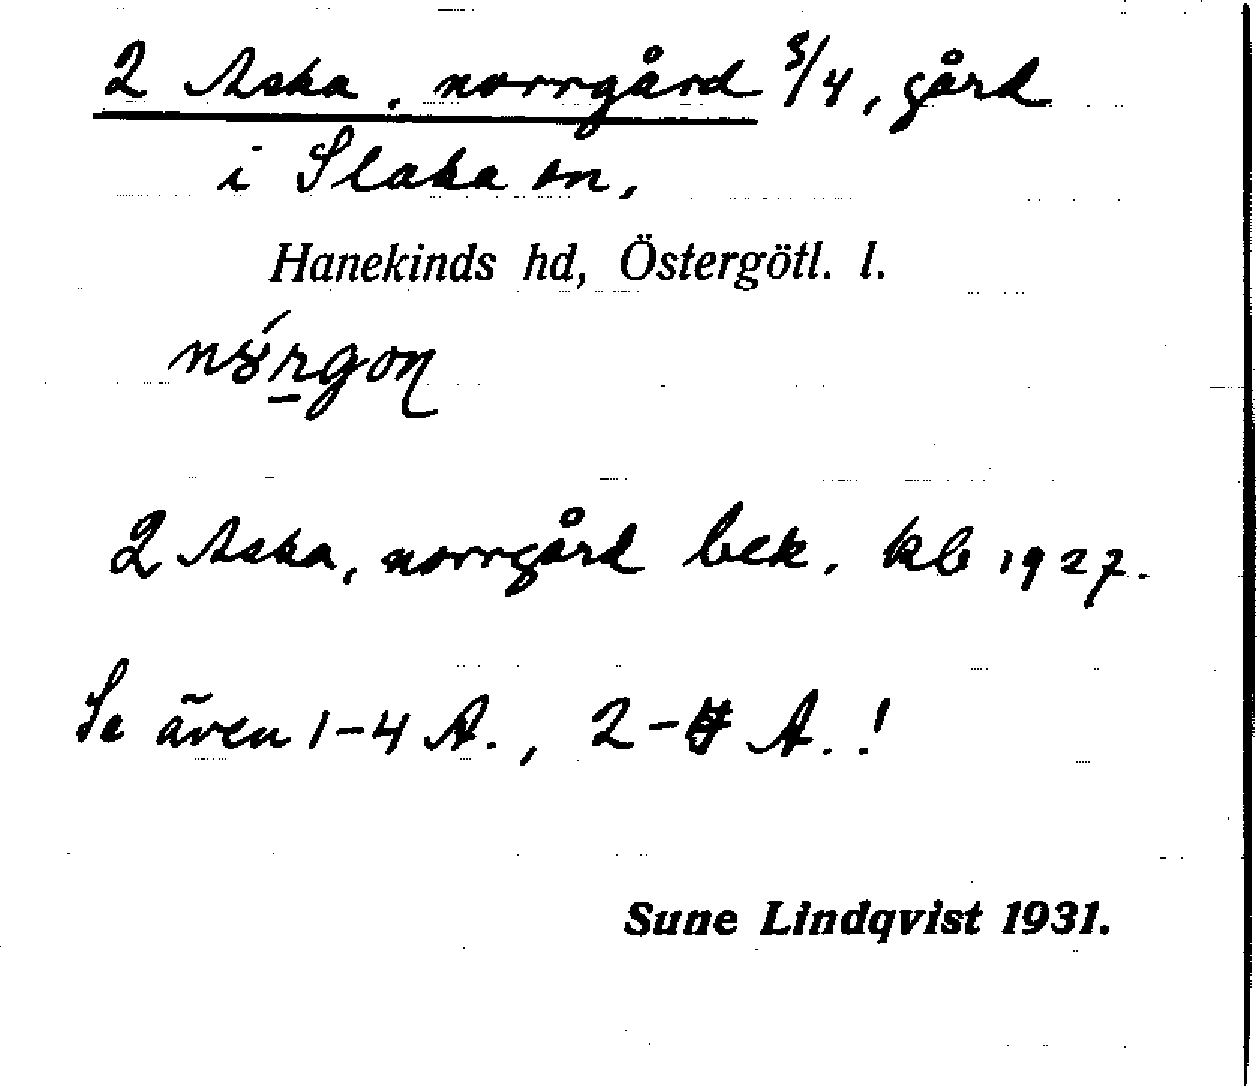 2 Aska, norrgård 3/4, gård
i Slaka sn,
Hanekinds hd, Östergötl. l.
2 Aska, norrgård bek. kb 1927.
Se även 1-4 A., 2-4 A..!
Sune Lindqvist 1931.